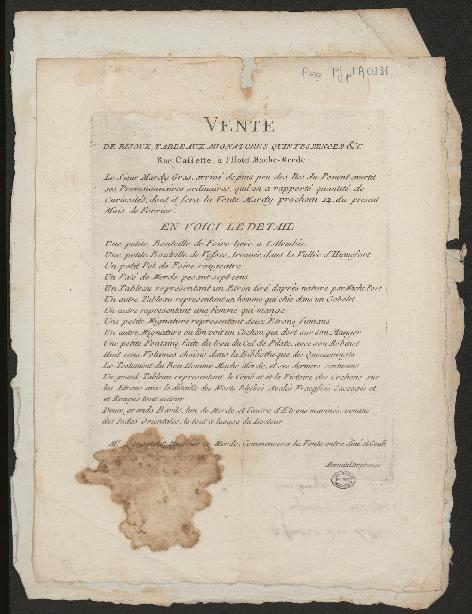 VENTE
DE BIJOUX, TABLEAUX, MIGNATURES QUINTESSENCES &C
Rue Cassette, à l'Hotel Mache-Merde
Le Sieur Mardy Gras, arrivé depuis peu des Iles du Ponant avertit
ses Provisionnaires ordinaires, qu'il en a rapporté quantité de
Curiosités, dont il fera la Vente Mardy prochain 12. du present
Mois de Fevrier.
EN VOICI LE DETAIL
Une petite Bouteille de Foire tirée a L'Alembic
Une petite Bouteille de Vesses, trouvée dans la Vallée d'Humefort
Un petit Pot de Foire
Un Pate de Merde pesant sept cens
Un Tableau representant un Etron tiré d'après nature par Mache Fort
Un autre Tableau representant un homme qui chie dans un Gobelet
Un autre representant une femme qui mange
Une petite Mignature representant deux Etrons fumans
Un autre Mignature ou l'on voit un Cochon qui dort sur son Manger
Une petite Fontaine faite du bou du Cul de Pilate, avec son Robinet
Huit cens Volumes choisis dans la Bibliotheque des
Le Testament du Bon Homme Mache Merde, et ses derniers sentimens
Un grand Tableau representant le Combat et la Victoire des Cochons sur
les Etrons avec le détaille des Morts Blessés Avalés Fracassés Saccagés et
et Rongés tout autour
Deux grands Barils, l'un de Merde, et l'autre d'Etrons marinés, venans
des Indes Orientales, le tout a l'usage du Lecteur
Mr. Huissier Merde, Commencera la Vente entre